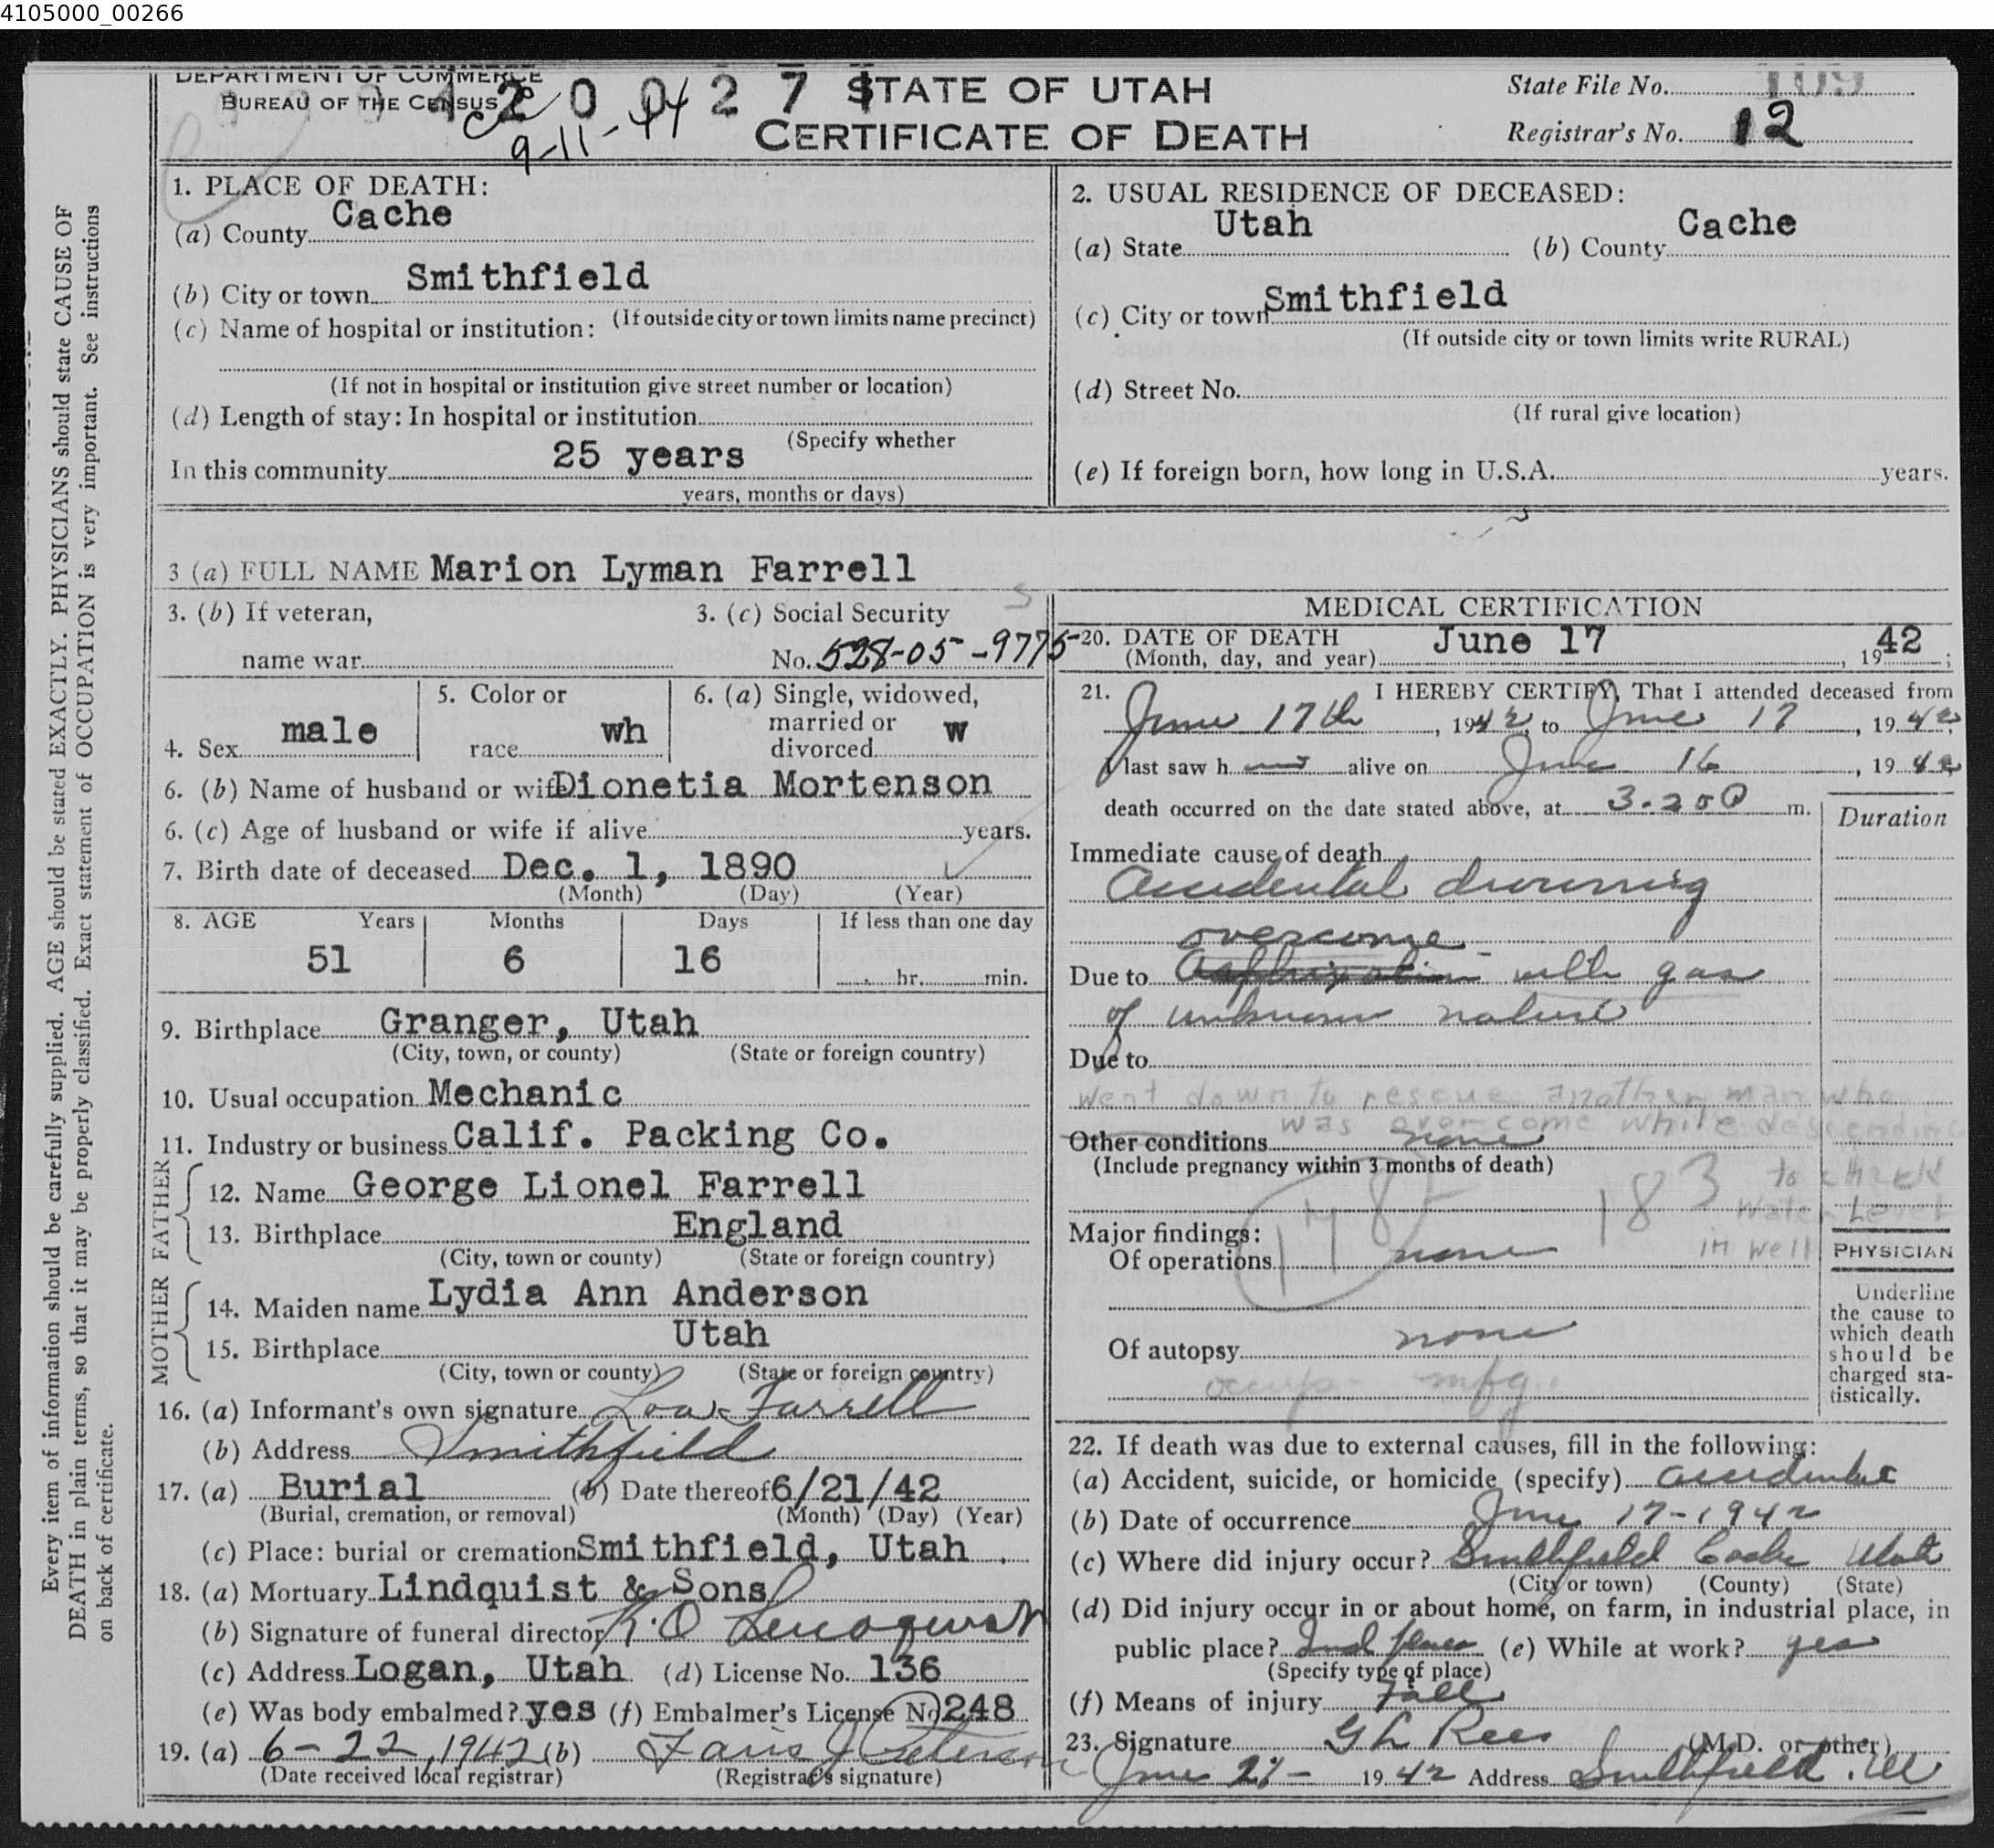 4105000_00266
DEPARTMENT OF COMMERCE
BUREAU OF THE CENSUS
9-11-44
STATE OF UTAH
CERTIFICATE OF DEATH
State File No. 109
Registrar's No. 12
Every item of information should be carefully supplied. AGE should be stated EXACTLY. PHYSICIANS should state CAUSE OF
DEATH in plain terms, so that it may be properly classified. Exact statement of OCCUPATION is very important. See instructions
on back of certificate.
1. PLACE OF DEATH:
(a) County Cache
(b) City or town Smithfield
(If outside city or town limits name precinct)
(c) Name of hospital or institution:
(If not in hospital or institution give street number or location)
(d) Length of stay: In hospital or institution
(Specify whether
In this community 25 years
years, months or days)
2. USUAL RESIDENCE OF DECEASED:
(a) State Utah (b) County Cache
(c) City or town Smithfield
(If outside city or town limits write RURAL)
(d) Street No.
(If rural give location)
(e) If foreign born, how long in U.S.A. years.
3 (a) FULL NAME Marion Lyman Farrell
3. (b) If veteran,
name war
3. (c) Social Security
No. 528-05-9775
4. Sex male
5. Color or
race wh
6. (a) Single, widowed,
married or
divorced w
6. (b) Name of husband or wife Dionetia Mortenson
6. (c) Age of husband or wife if alive years.
7. Birth date of deceased Dec. 1, 1890
(Month) (Day) (Year)
8. AGE Years Months Days If less than one day
51 6 16 hr. min.
9. Birthplace Granger, Utah
(City, town, or county) (State or foreign country)
10. Usual occupation Mechanic
11. Industry or business Calif. Packing Co.
FATHER
12. Name George Lionel Farrell
13. Birthplace England
(City, town or county) (State or foreign country)
MOTHER
14. Maiden name Lydia Ann Anderson
15. Birthplace Utah
(City, town or county) (State or foreign country)
16. (a) Informant's own signature Loa Farrell
(b) Address Smithfield
17. (a) Burial (b) Date thereof 6/21/42
(Burial, cremation, or removal) (Month) (Day) (Year)
(c) Place: burial or cremation Smithfield, Utah.
18. (a) Mortuary Lindquist & Sons
(b) Signature of funeral director
(c) Address Logan, Utah (d) License No. 136
(e) Was body embalmed? yes (f) Embalmer's License No 248
19. (a) 6-22, 1942 (b) Faris J Peterson
(Date received local registrar) (Registrar's signature)
MEDICAL CERTIFICATION
20. DATE OF DEATH June 17, 1942;
(Month, day, and year)
21. I HEREBY CERTIFY, That I attended deceased from
June 17th, 1942, to June 17, 1942;
I last saw h im alive on June 16, 1942
death occurred on the date stated above, at 3.20 P m.
Duration
Immediate cause of death
Accidental drowning
overcome
Due to Asphixiation with gas
of unknown nature
Due to
went down to rescue another man who
was overcome while descending
to check
water level
in well
Other conditions none
(Include pregnancy within 3 months of death)
183
Major findings:
Of operations none
Of autopsy none
occup- mfg.
PHYSICIAN
Underline
the cause to
which death
should be
charged sta-
tistically.
22. If death was due to external causes, fill in the following:
(a) Accident, suicide, or homicide (specify)
(b) Date of occurrence June 17-1942
(c) Where did injury occur? Smithfield Cache Utah
(City or town) (County) (State)
(d) Did injury occur in or about home, on farm, in industrial place, in
public place? Ind place (e) While at work? yes
(Specify type of place)
(f) Means of injury Fall
23. Signature G L Rees (M.D. or other)
June 1942 Address Smithfield